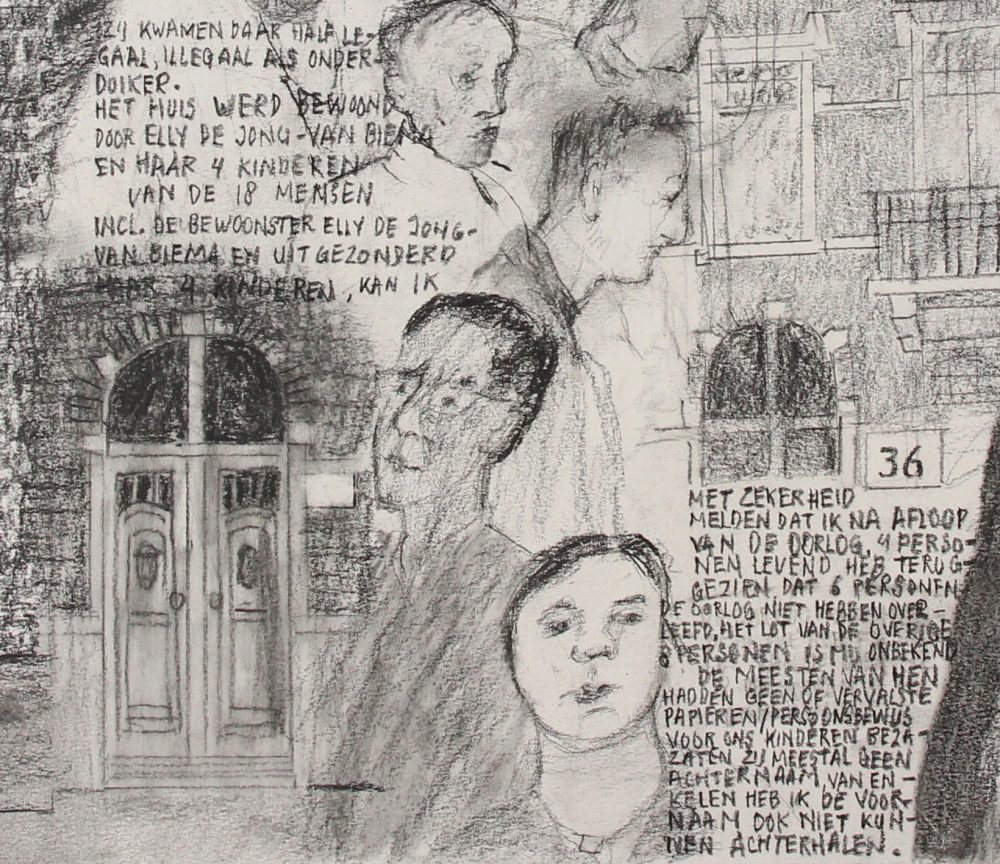 ZIJ KWAMEN DAAR HALF LE-
GAAL, ILLEGAAL ALS ONDER-
DUIKER.
HET HUIS WERD BEWOOND
DOOR ELLY DE JONG-VAN BIEMA
EN HAAR 4 KINDEREN
VAN DE 18 MENSEN
INCL. DE BEWOONSTER ELLY DE JONG-
VAN BIEMA EN UITGEZONDERD
HAAR 4 KINDEREN, KAN IK
36
MET ZEKERHEID
MELDEN DAT IK NA AFLOOP
VAN DE OORLOG, 4 PERSO-
NEN LEVEND HEB TERUG-
GEZIEN, DAT 6 PERSONEN
DE OORLOG NIET HEBBEN OVER-
LEEFD, HET LOT VAN DE OVERIGE
8 PERSONEN IS MIJ ONBEKEND
DE MEESTEN VAN HEN
HADDEN GEEN OF VERVALSTE
PAPIEREN/PERSOONSBEWIJS
VOOR ONS KINDEREN BEZA-
ZATEN ZIJ MEESTAL GEEN
ACHTERNAAM, VAN EN-
KELEN HEB IK DE VOOR-
NAAM OOK NIET KUN-
NEN ACHTERHALEN.